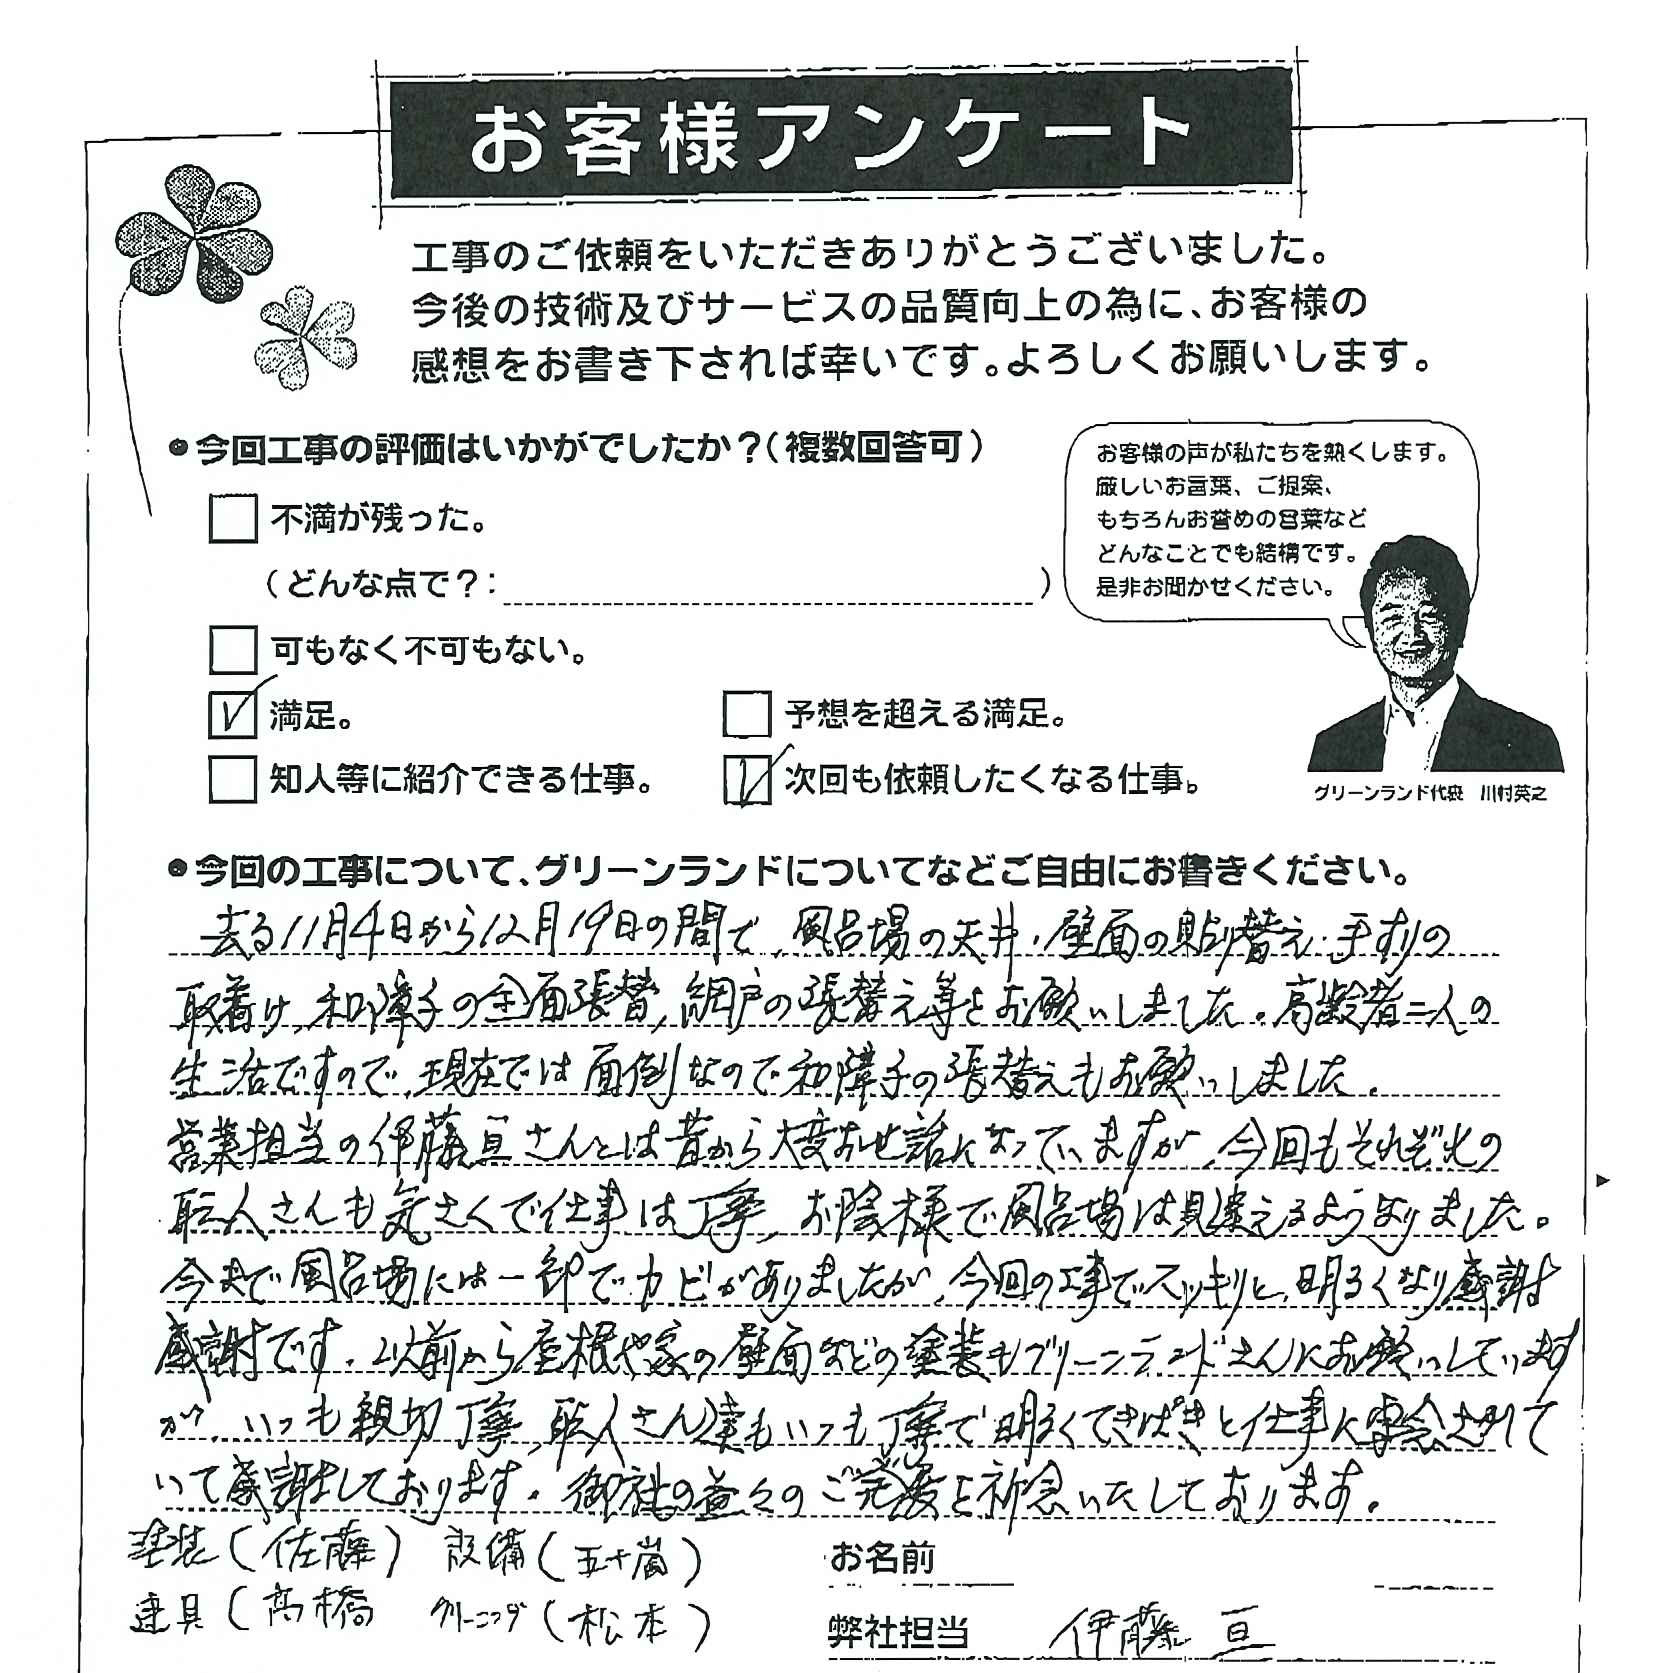 お客様アンケート
工事のご依頼をいただきありがとうございました。
今後の技術及びサービスの品質向上の為に、お客様の
感想をお書き下されば幸いです。よろしくお願いします。
●今回工事の評価はいかがでしたか？(複数回答可)
不満が残った。
(どんな点で？: )
可もなく不可もない。
満足。
予想を超える満足。
知人等に紹介できる仕事。
次回も依頼したくなる仕事。
お客様の声が私たちを熱くします。
厳しいお言葉、ご提案、
もちろんお誉めの言葉など
どんなことでも結構です。
是非お聞かせください。
グリーンランド代表 川村英之
●今回の工事について、グリーンランドについてなどご自由にお書きください。
去る11月4日から12月19日の間で、風呂場の天井・壁面の貼り替え・手すりの
取着け、和障子の全面張替、網戸の張替え等とお願いしました。高齢者二人の
生活ですので、現在では面倒なので和障子の張替えもお願いしました。
営業担当の伊藤亘さんとは昔から大変お世話になっていますが、今回もそれぞれの
職人さんも気さくで仕事は丁寧、お陰様で風呂場は見違えるようなりました。
今まで風呂場には一部でカビがありましたが、今回の工事でスッキリと、明るくなり感謝
感謝です。以前から屋根や家の壁面などの塗装もグリーンランドさんにお願いしています
が、いつも親切丁寧、職人さん達もいつも丁寧で明るくてきぱきと仕事に専念されて
いて感謝しております。御社の益々のご発展を祈念いたしております。
塗装(佐藤) 設備(五十嵐)
建具(高橋 クリーニング(松本)
お名前
弊社担当 伊藤 亘